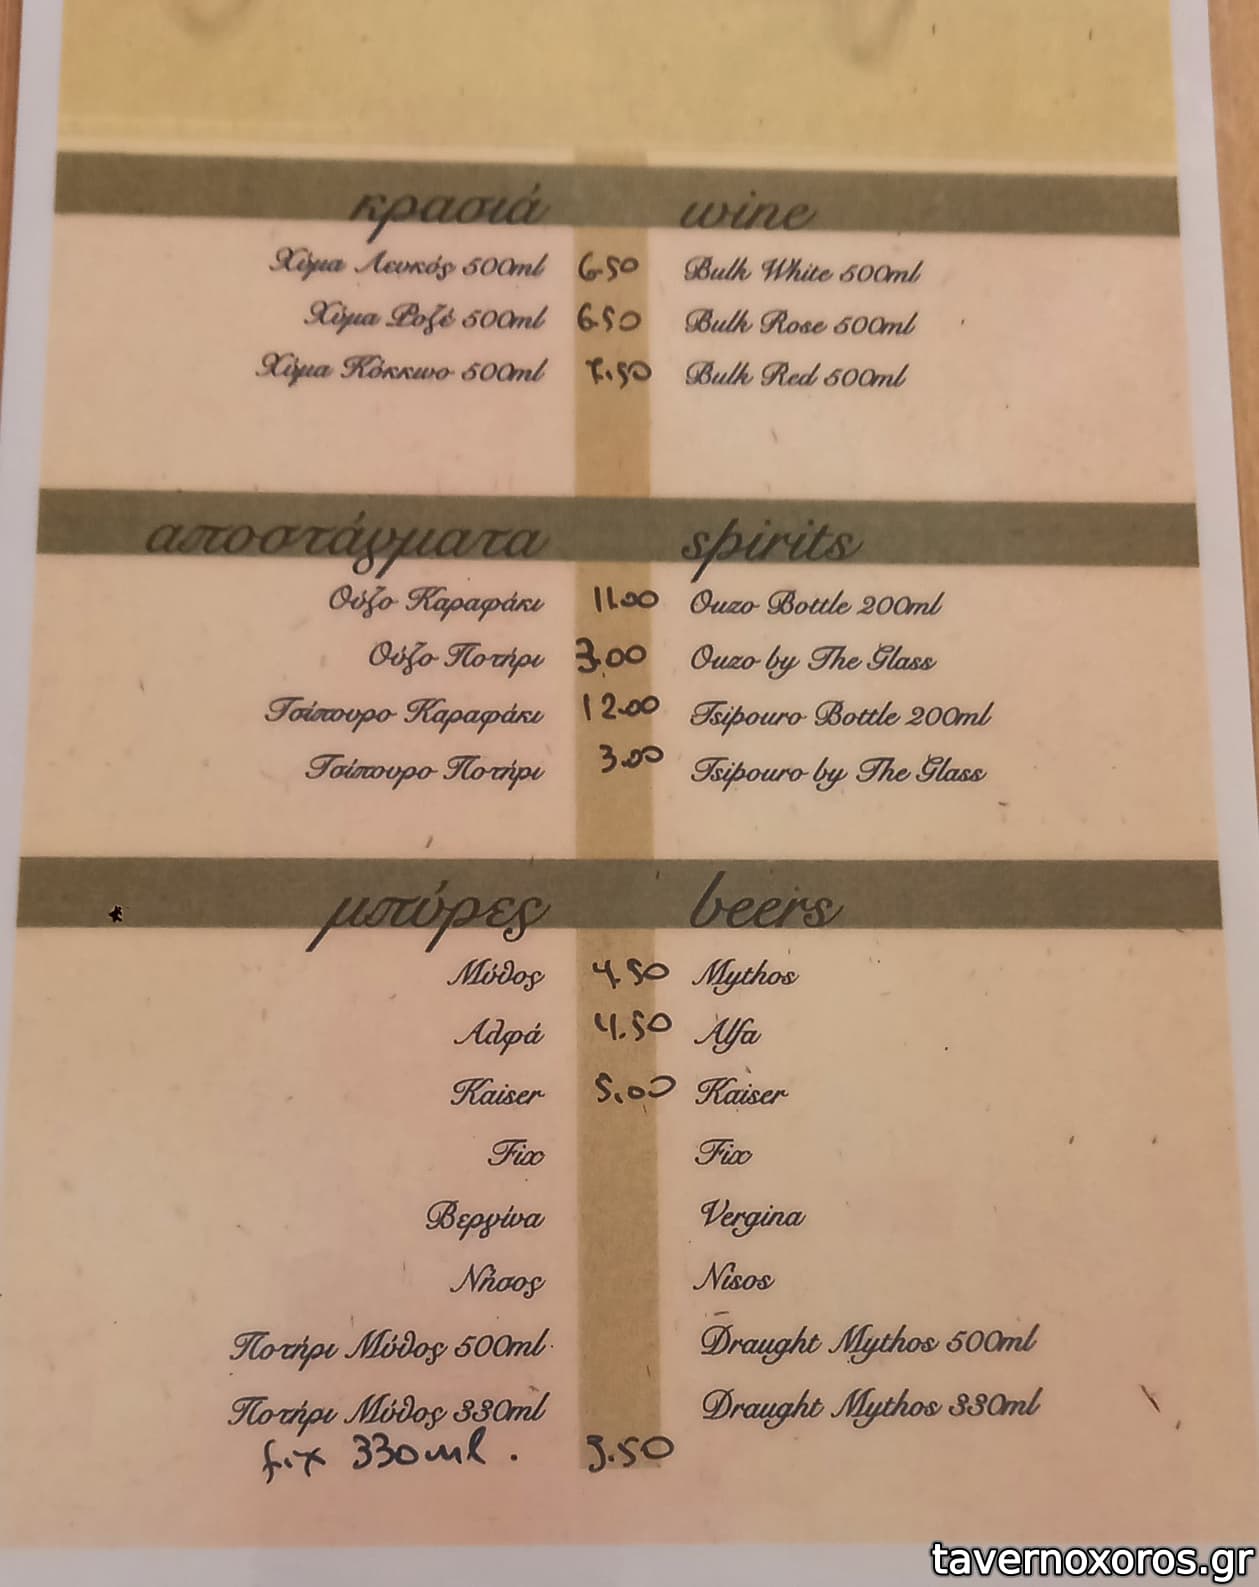 κρασιά wine
Χύμα Λευκός 500ml 6.50 Bulk White 500ml
Χύμα Ροζέ 500ml 6.50 Bulk Rose 500ml
Χύμα Κόκκινο 500ml 7.50 Bulk Red 500ml
αποστάγματα spirits
Ούζο Καραφάκι 11.00 Ouzo Bottle 200ml
Ούζο Ποτήρι 3.00 Ouzo by The Glass
Τσίπουρο Καραφάκι 12.00 Tsipouro Bottle 200ml
Τσίπουρο Ποτήρι 3.00 Tsipouro by The Glass
μπύρες beers
Μύθος 4.50 Mythos
Αλφά 4.50 Alfa
Kaiser 5.00 Kaiser
Fix Fix
Βεργίνα Vergina
Νήσος Nisos
Ποτήρι Μύθος 500ml Draught Mythos 500ml
Ποτήρι Μύθος 330ml Draught Mythos 330ml
fix 330ml. 3.50
tavernoxoros.gr